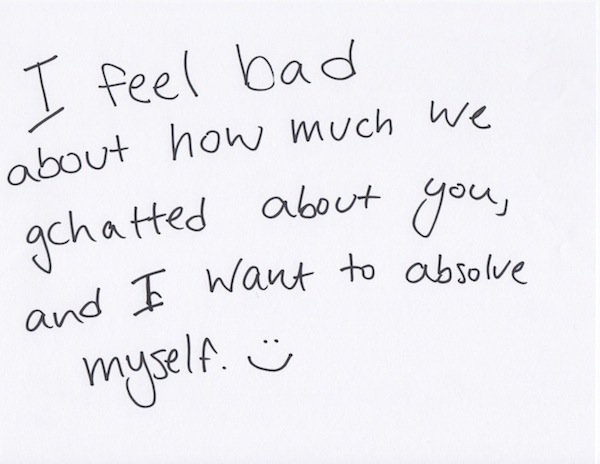 I feel bad
about how much we
gchatted about you,
and I want to absolve
myself. :)